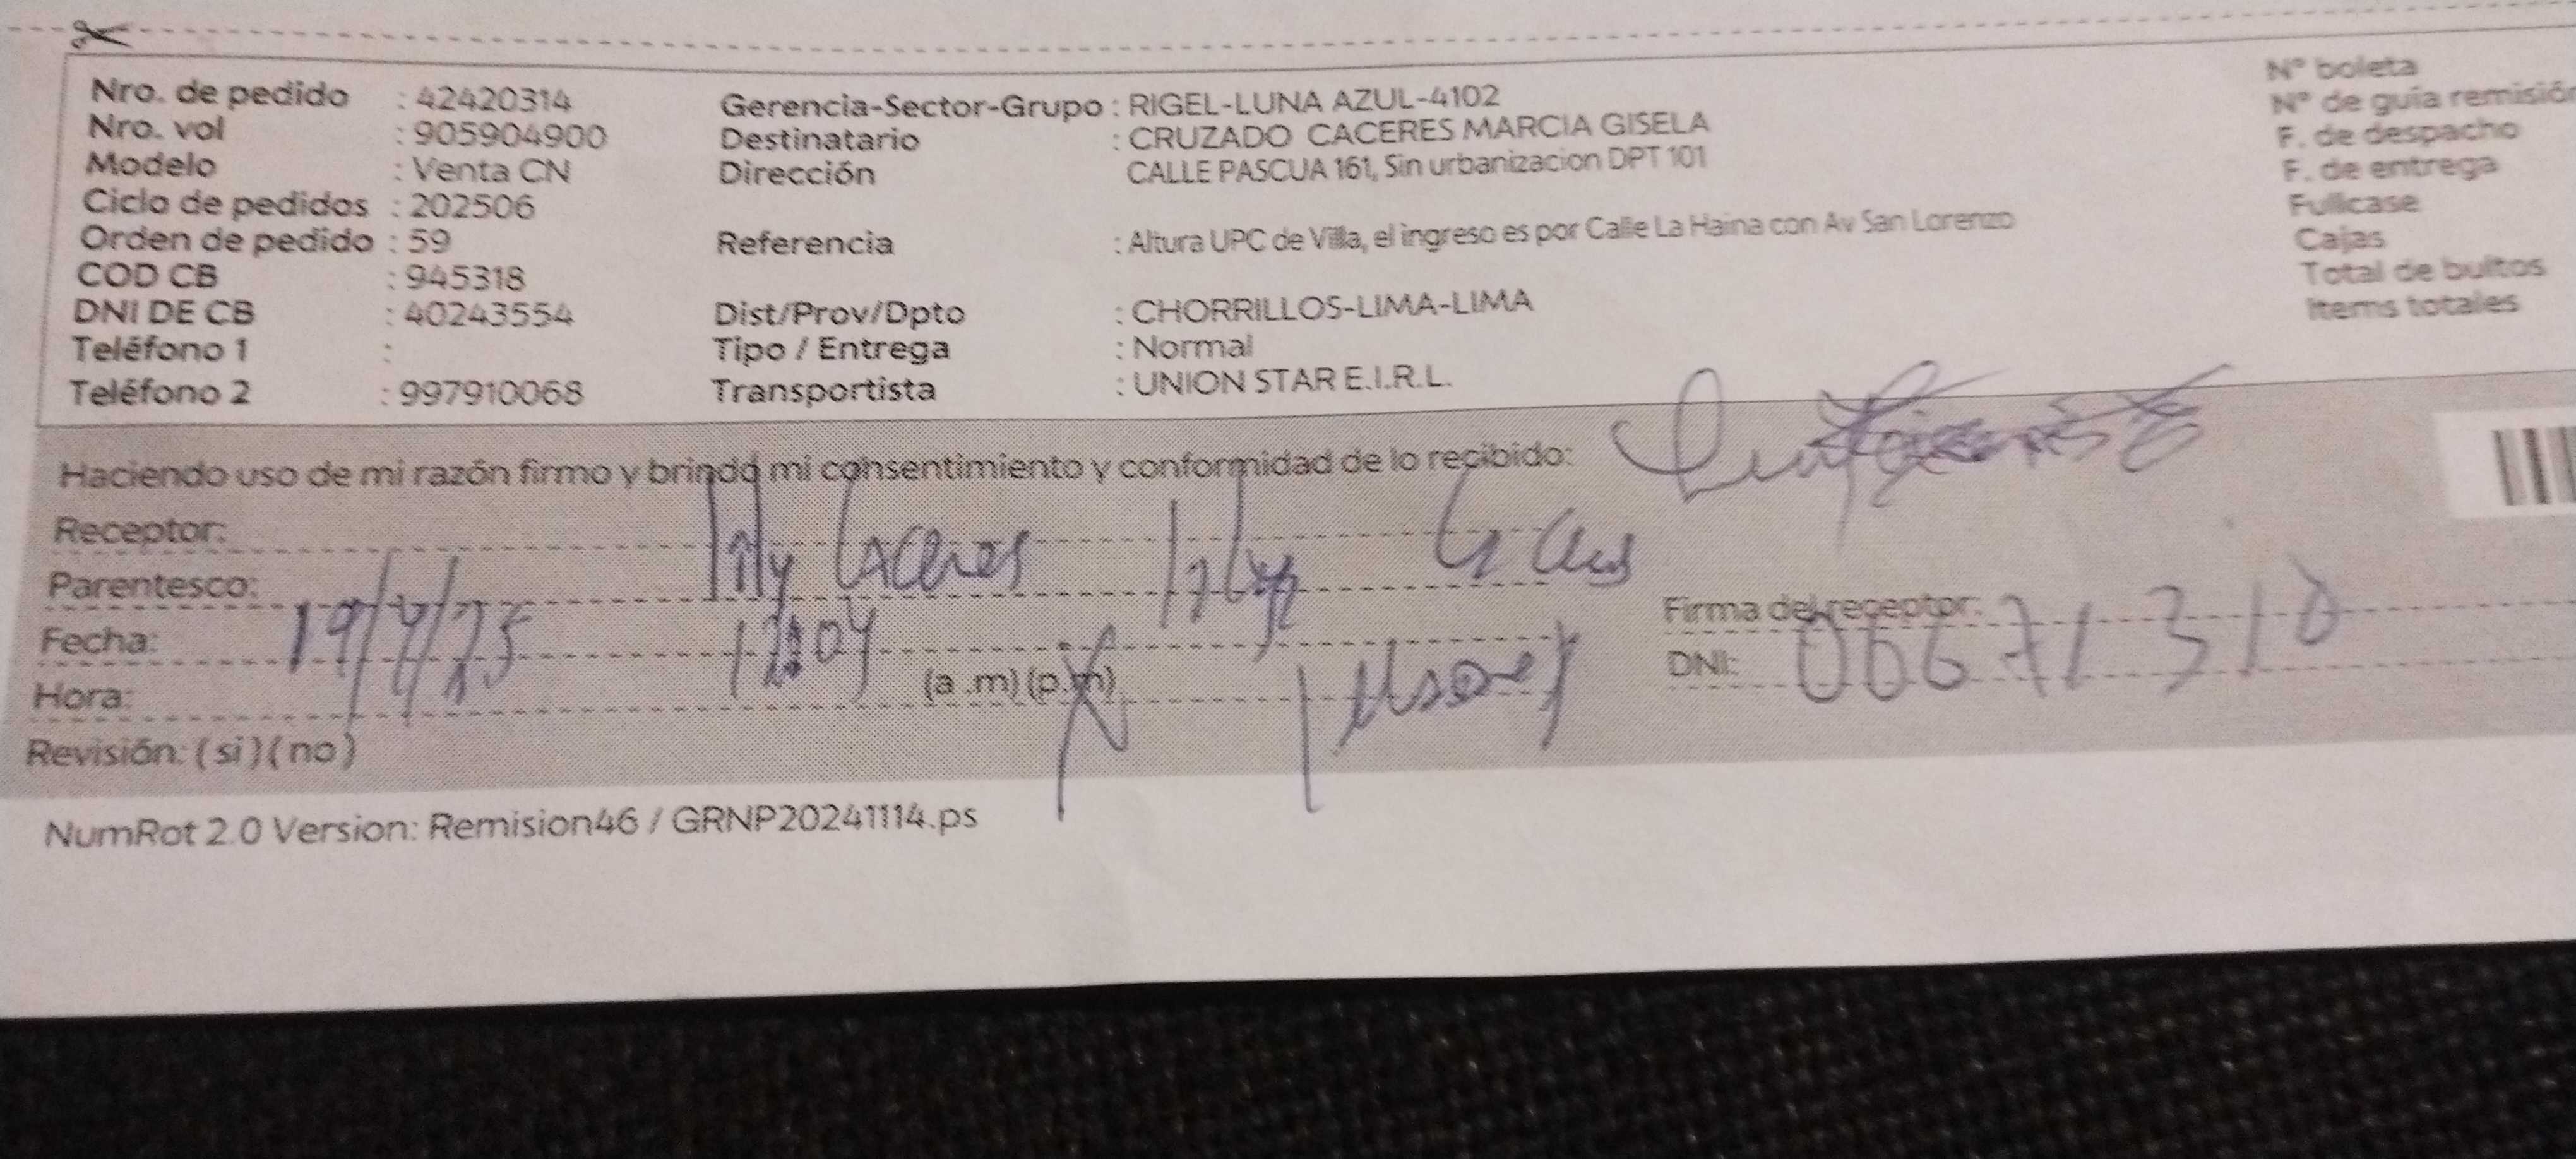 Nro. de pedido : 42420314 Gerencia-Sector-Grupo : RIGEL-LUNA AZUL-4102 N° boleta
Nro. vol : 905904900 Destinatario : CRUZADO CACERES MARCIA GISELA N° de guía remisión
Modelo : Venta CN Dirección CALLE PASCUA 161, Sin urbanizacion DPT 101 F. de despacho
Ciclo de pedidos : 202506 F. de entrega
Orden de pedido : 59 Referencia : Altura UPC de Villa, el ingreso es por Calle La Haina con Av San Lorenzo Fullcase
COD CB : 945318 Cajas
DNI DE CB : 40243554 Dist/Prov/Dpto : CHORRILLOS-LIMA-LIMA Total de bultos
Teléfono 1 : Tipo / Entrega : Normal Items totales
Teléfono 2 : 997910068 Transportista : UNION STAR E.I.R.L.
Haciendo uso de mi razón firmo y brindo mi consentimiento y conformidad de lo recibido:
Receptor: Caceres
Parentesco:
Fecha: 19/4/25 Firma del receptor:
Hora: 12:04 (a .m) (p.m) DNI: 06671310
Revisión: ( si ) ( no )
NumRot 2.0 Version: Remision46 / GRNP20241114.ps